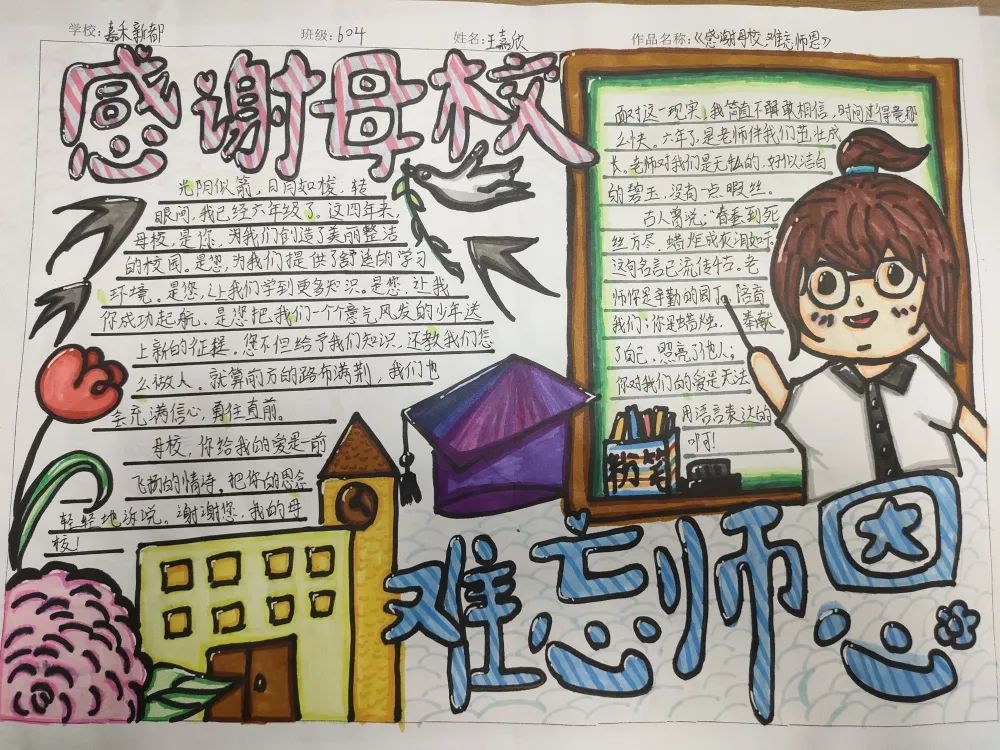 学校:嘉禾新都 班级:604 姓名:王嘉欣 作品名称:《感谢母校,难忘师恩》
感谢母校
光阴似箭,日月如梭,转
眼间,我已经六年级了。这四年来,
母校,是你,为我们创造了美丽整洁
的校园。是您,为我们提供了舒适的学习
环境。是您,让我们学到更多知识。是您,让我
你成功起航,是您把我们一个个意气风发的少年送
上新的征程。您不但给予我们知识,还教我们怎
么做人。就算前方的路布满荆,我们也
会充满信心,勇往直前。
母校,你给我的爱是一前
飞扬的情诗,把你的思念
轻轻地诉说。谢谢您,我的母
校!
面对这一现实,我简直不敢相信,时间过得是那
么快。六年了,是老师伴我们茁壮成
长。老师对我们是无私的,好似洁白
的碧玉,没有一点暇丝。
古人曾说:“春蚕到死
丝方尽,蜡炬成灰泪始干
这句名言已流传千古。老
师你是辛勤的园丁,陪育
我们;你是蜡烛,奉献
了自己,照亮了他人;
你对我们的爱是无法
用语言表达的
啊!
粉笔
难忘师恩